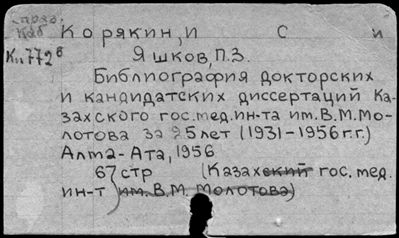 справ.
каб
Корякин, И С и
Кп772б Яшков, П.З.
Библиография докторских
и кандидатских диссертаций Ка-
захского гос.мед.ин-та им.В.М.Мо-
лотова за 25 лет (1931-1956г.г.)
Алма-Ата, 1956
67 стр (Казахский гос. мед.
ин-т им. В.М. Молотова)